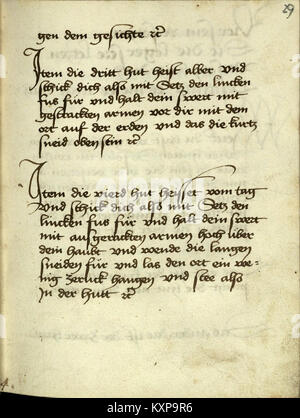 29
gen dem gesichte rc
Item die dritt hut heist alber vnd
schick dich also mit Setz den lincken
fus für vnd halt dein swert mit
gestrackten armen vor dir mit dem
ort auf der erden vnd das die kurtz
sneid oben sein rc
Item die vierd hut heisset vom tag
vnd schick dich also mit Setz den
lincken fus für vnd halt dein swert
mit aufgerackten armen hoch über
dem haubt vnd wende die langen
sneiden für vnd las den ort ein we-
nig zeruck hangen vnd stee also
In der hutt rc
alamy
Image ID: KXP9R6
www.alamy.com